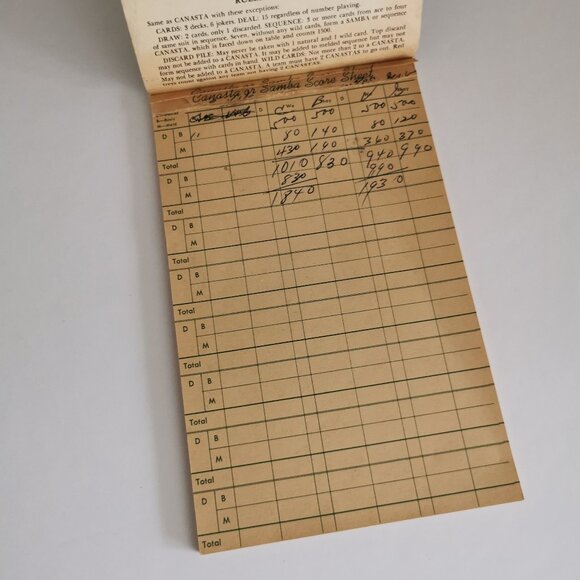 Same as CANASTA with these exceptions:
CARDS: 3 decks, 6 jokers. DEAL: 15 regardless of number playing.
DRAW: 2 cards, only 1 discarded. SEQUENCE: 3 or more cards from ace to four
of same suit in sequence. Seven, without any wild cards, form a SAMBA or sequence
CANASTA, which is faced down on table and counts 1500.
DISCARD FILE: May never be taken with 1 natural and 1 wild card. Top discard
may not be added to a CANASTA. It may be added to melded sequence but may not
form sequence with cards in hand. WILD CARDS: Not more than 2 to a CANASTA.
May not be added to a CANASTA. A team must have 2 CANASTAS to go out. Red
Canasta or Samba Score Sheet
We
D B 500 500 500 500
M 80 140 80 120
430 190 360 370
Total 1010 830 940 990
D B 830 990
M 1840 1930
Total
D B
M
Total
D B
M
Total
D B
M
Total
D B
M
Total
D B
M
Total
D B
M
Total